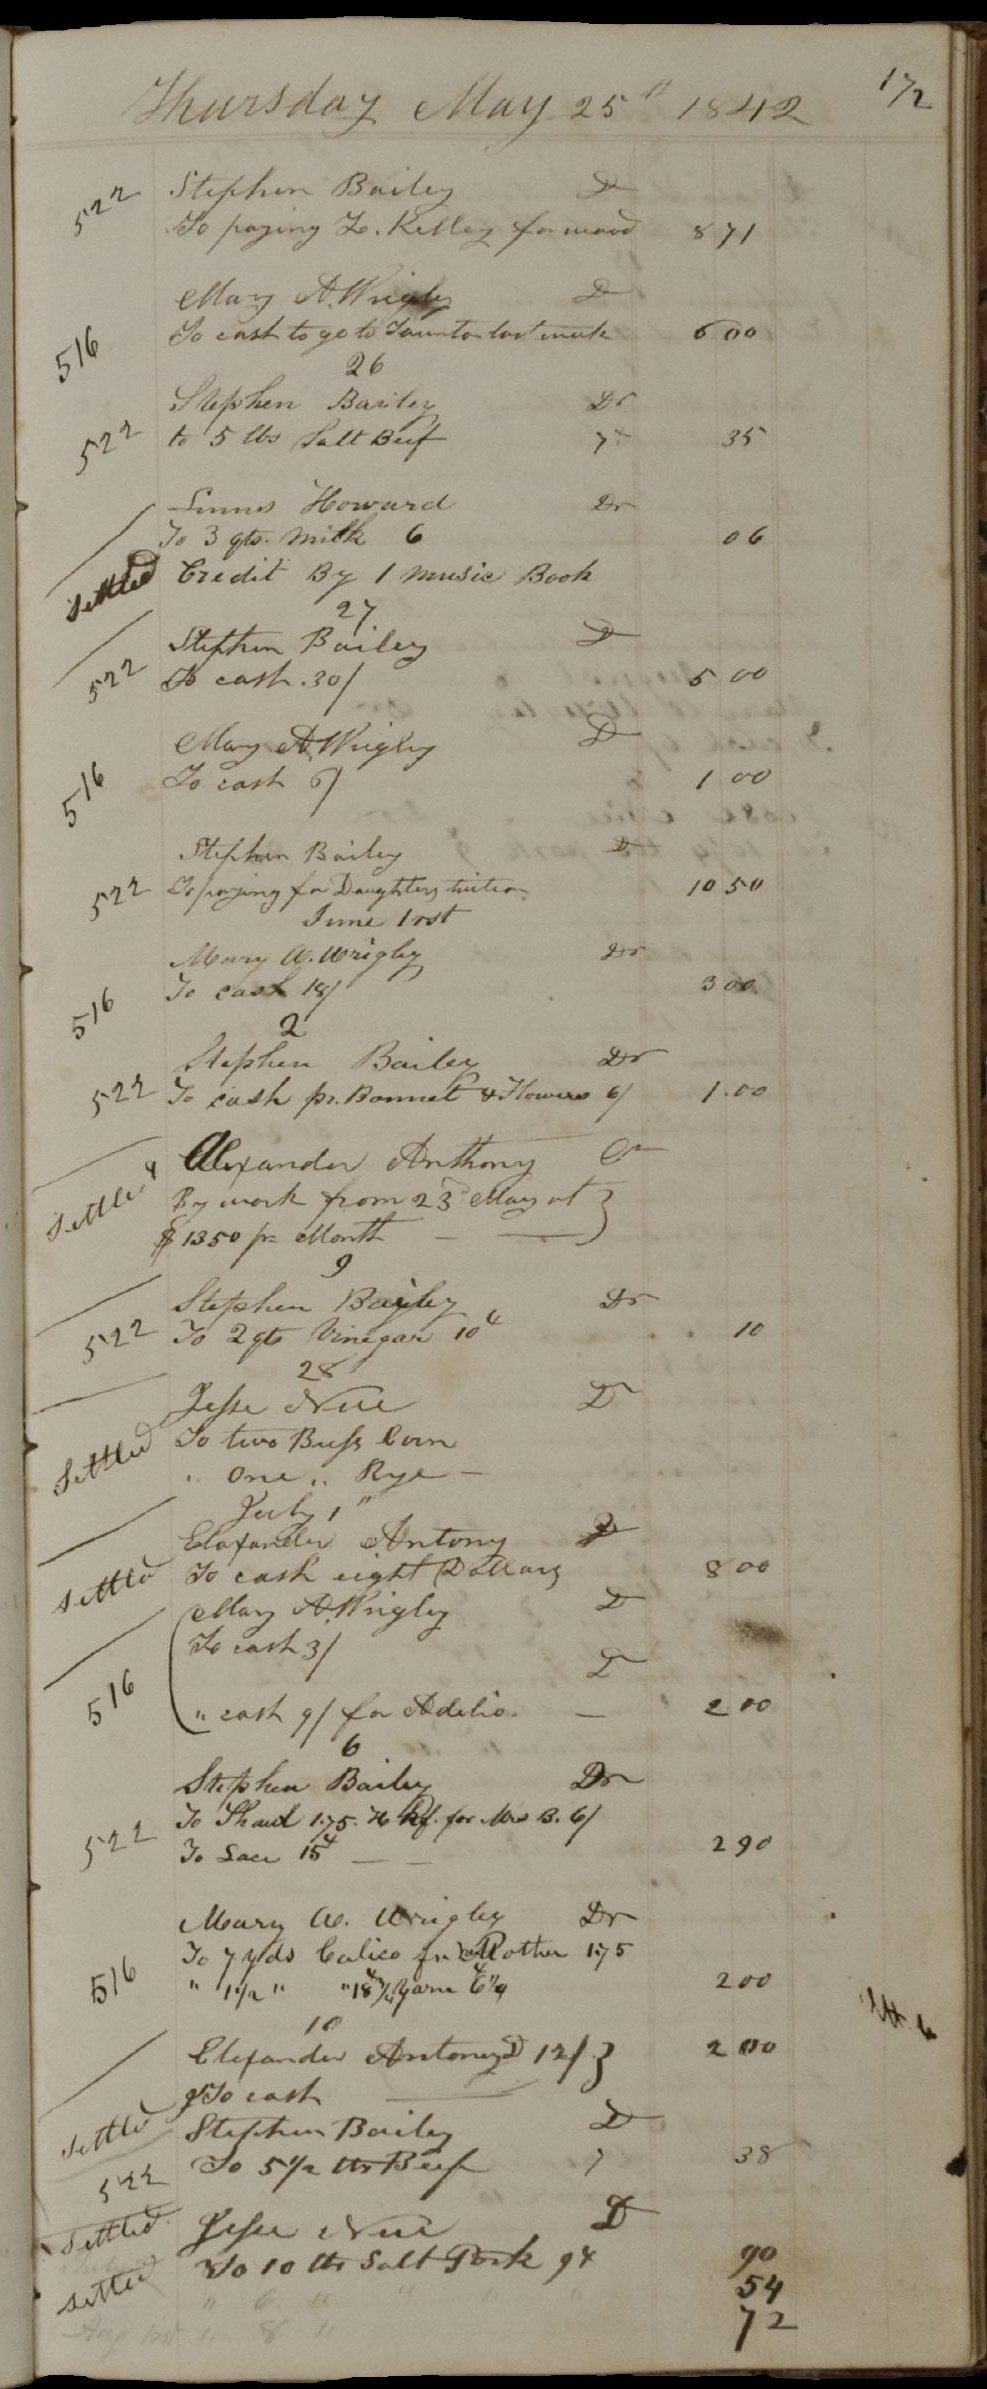 172
Thursday May 25th 1842
522 Stephen Bailey D
To paying L. Kelley for wood 8 71
Mary A. Wrigley D
516 To cash to go to Taunton last week 6 00
26
Stephen Bailey Dr
522 to 5 lbs Salt Beef 7 35
Linus Howard Dr
To 3 qts. milk 6 06
Settled Credit By 1 music Book
27
Stephen Bailey D
522 To cash .30/ 5 00
Mary A. Wrigley D
516 To cash 6/ 1 00
Stephen Bailey D
522 To paying for Daughters tuition 10 50
June 1rst
Mary A. Wrigley Dr
516 To cash 18/ 3 00
2
Stephen Bailey Dr
522 To cash pr. Bonnet & Flowers 6/ 1.00
Alexander Anthony Cr
Settled By work from 23d May at }
$13 50 pr Month
9
Stephen Bailey Dr
522 To 2 qts Vinegar 10 10
28
Jesse Nue D
Settled To two Bush Corn
" One " Rye -
July 1"
Elaxander Antony D
Settled To cash eight Dollars 8 00
Mary A. Wrigley D
516 To cash 3/ D
" cash 9/ for Adelia. - 2 00
6
Stephen Bailey Dr
To Shawl 1.75. H Kf. for Mrs B. 6/
522 To Lace 15 2 90
Mary A. Wrigley Dr
To 7 yds Calico for Mother 1.75
516 " 1 1/2 " " 18 Yarn 6 1/4 2 00
10
Elexander Antony D 12/ } 2 00
Settled To cash
Stephen Bailey D
522 To 5 1/2 lbs Beef 7 38
Settled Jesse Nue D
To 10 lbs Salt Pork 9 90
Settled " 6 " " " " 54
" 8 " 72